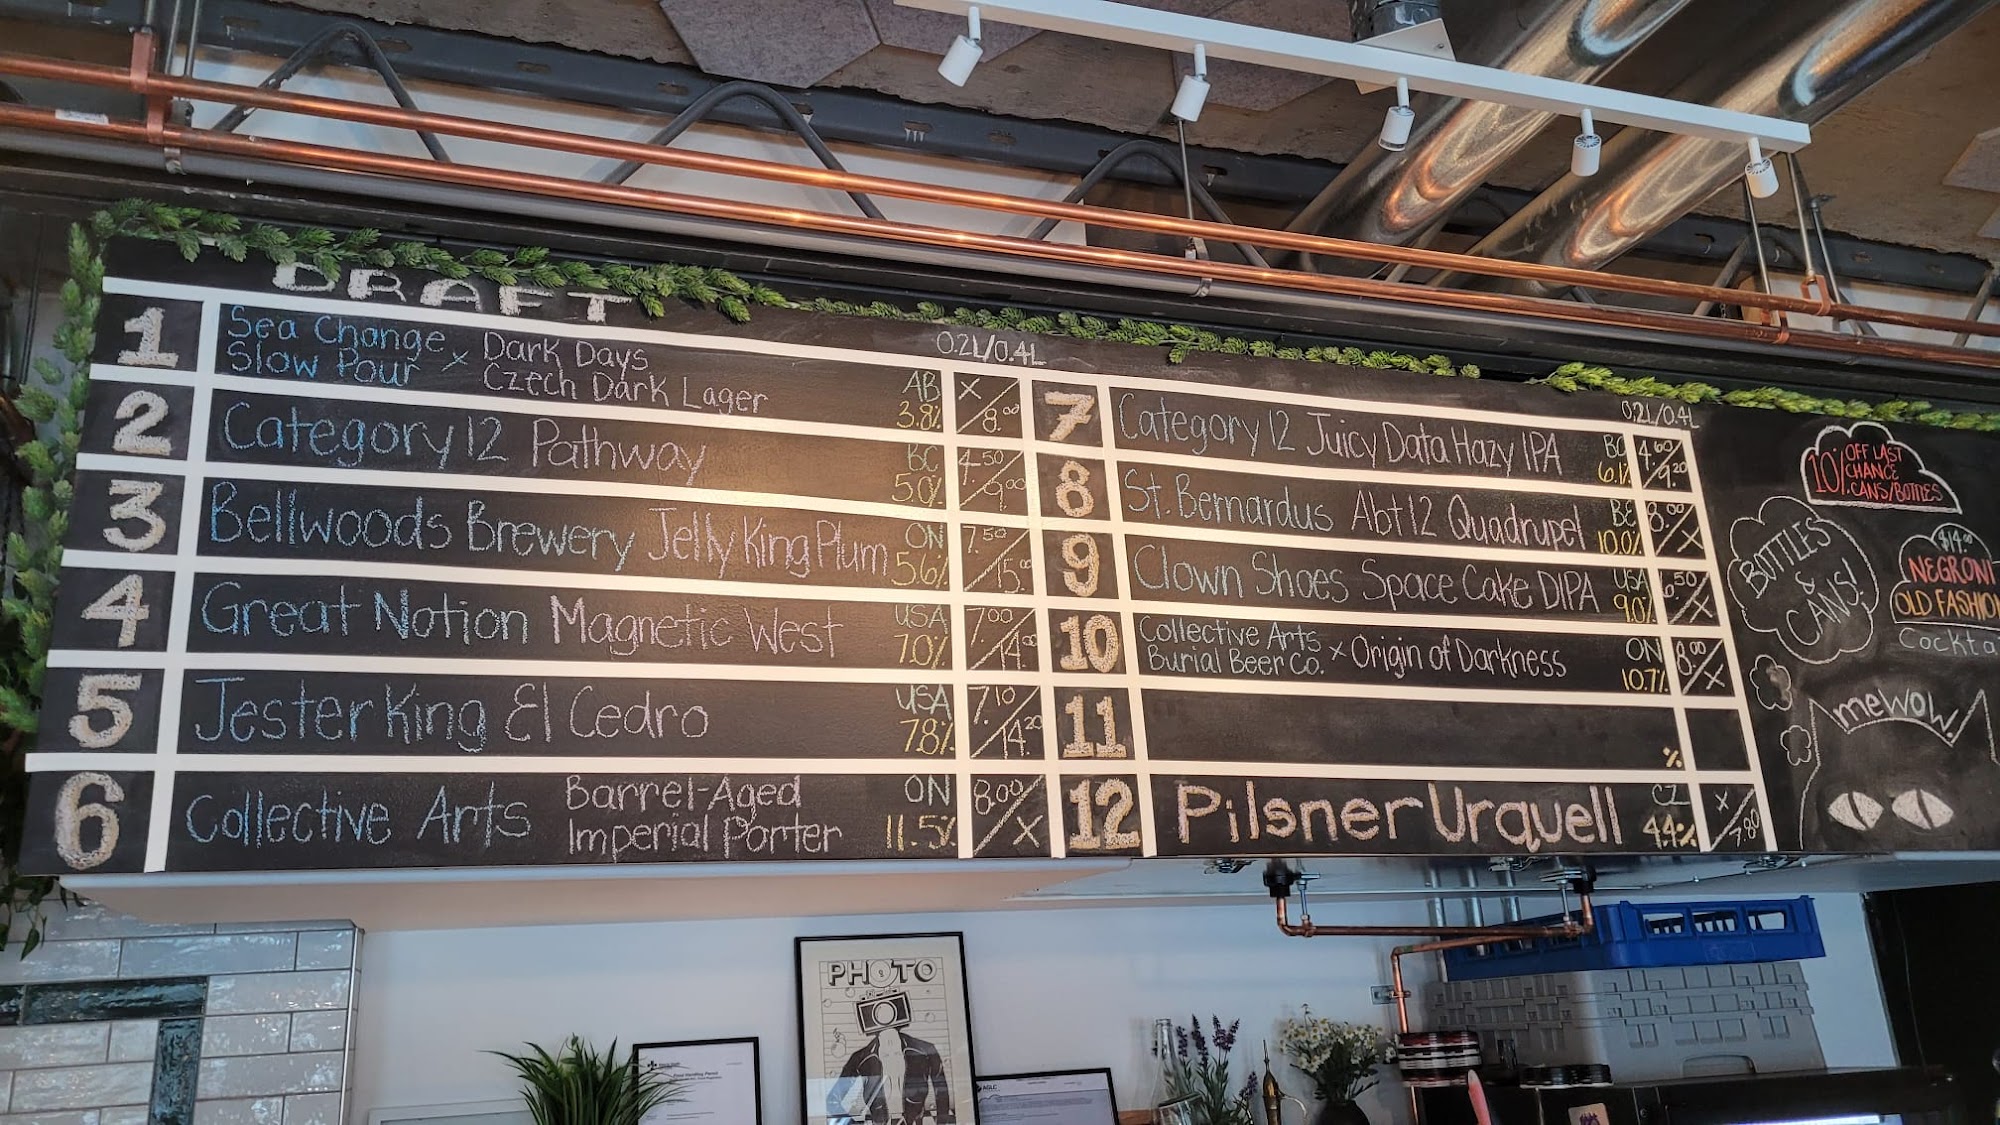 DRAFT
0.2L/0.4L
1
Sea Change
Slow Pour
x
Dark Days
Czech Dark Lager
AB
3.8%
x/8.00
2
Category 12 Pathway
BC
5.0%
4.50/9.00
3
Bellwoods Brewery Jelly King Plum
ON
5.6%
7.50/15.00
4
Great Notion Magnetic West
USA
7.0%
7.00/14.00
5
Jester King El Cedro
USA
7.8%
7.10/14.20
6
Collective Arts
Barrel-Aged
Imperial Porter
ON
11.5%
8.00/x
0.2L/0.4L
7
Category 12 Juicy Data Hazy IPA
BC
6.1%
4.60/9.20
8
St. Bernardus Abt 12 Quadrupel
BE
10.0%
8.00/x
9
Clown Shoes Space Cake DIPA
USA
9.0%
6.50/x
10
Collective Arts
Burial Beer Co.
x Origin of Darkness
ON
10.7%
8.00/x
11
%
12
Pilsner Urquell
CZ
4.4%
x/7.80
10% OFF LAST
CHANCE
CANS/BOTTLES
BOTTLES
&
CANS!
$14.00
NEGRONI
OLD FASHION
Cockta
meWOW!
PHOTO
Food Handling Permit
AGLC